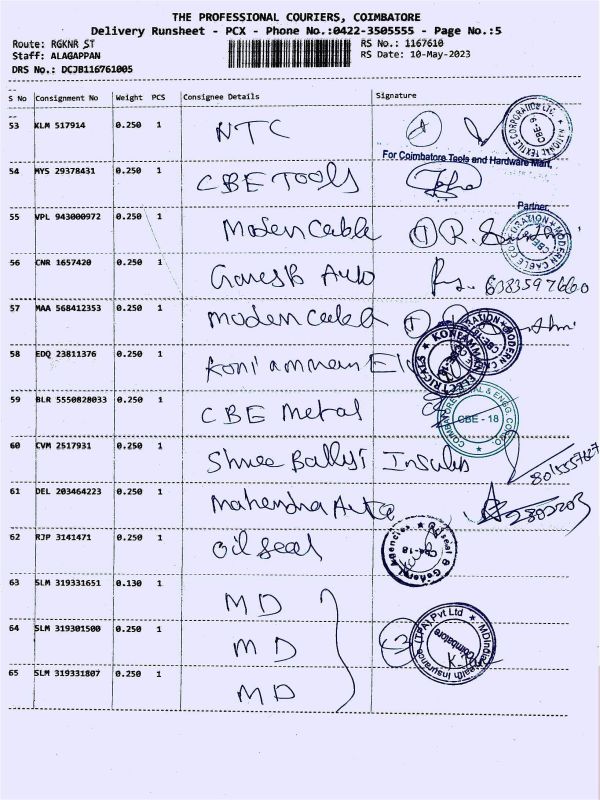 THE PROFESSIONAL COURIERS, COIMBATORE
Delivery Runsheet - PCX - Phone No.:0422-3505555 - Page No.:5
Route: RGKNR ST
RS No.: 1167610
Staff: ALAGAPPAN
RS Date: 10-May-2023
DRS No.: DCJB116761005
S No Consignment No Weight PCS Consignee Details Signature
53 KLM 517914 0.250 1 NTC
NATIONAL TEXTILE CORPORATION LTD. CBE-9
For Coimbatore Tools and Hardware Mart,
54 MYS 29378431 0.250 1 CBE TOOLS
Partner.
55 VPL 943000972 0.250 1 Modern Cable
MODERN CABLE CORPORATION CBE-18
56 CNR 1657420 0.250 1 Ganesh Auto 6383597660
57 MAA 568412353 0.250 1 Modern Cable
MODERN CABLE CORPORATION CBE-18
58 EDQ 23811376 0.250 1 Koni amman El
KONIAMMAN ELECTRICALS
59 BLR 5550828033 0.250 1 CBE Metal
COIMBATORE METAL & ENGG. CBE - 18
60 CVM 2517931 0.250 1 Shree Balaji Insuln
61 DEL 203464223 0.250 1 Mahendra Auto
62 RJP 3141471 0.250 1 Oil seal
Oil seal & General Agencies
63 SLM 319331651 0.130 1 MD
64 SLM 319301500 0.250 1 MD
MDIndia Health Insurance (TPA) Pvt Ltd Coimbatore
65 SLM 319331807 0.250 1 MD